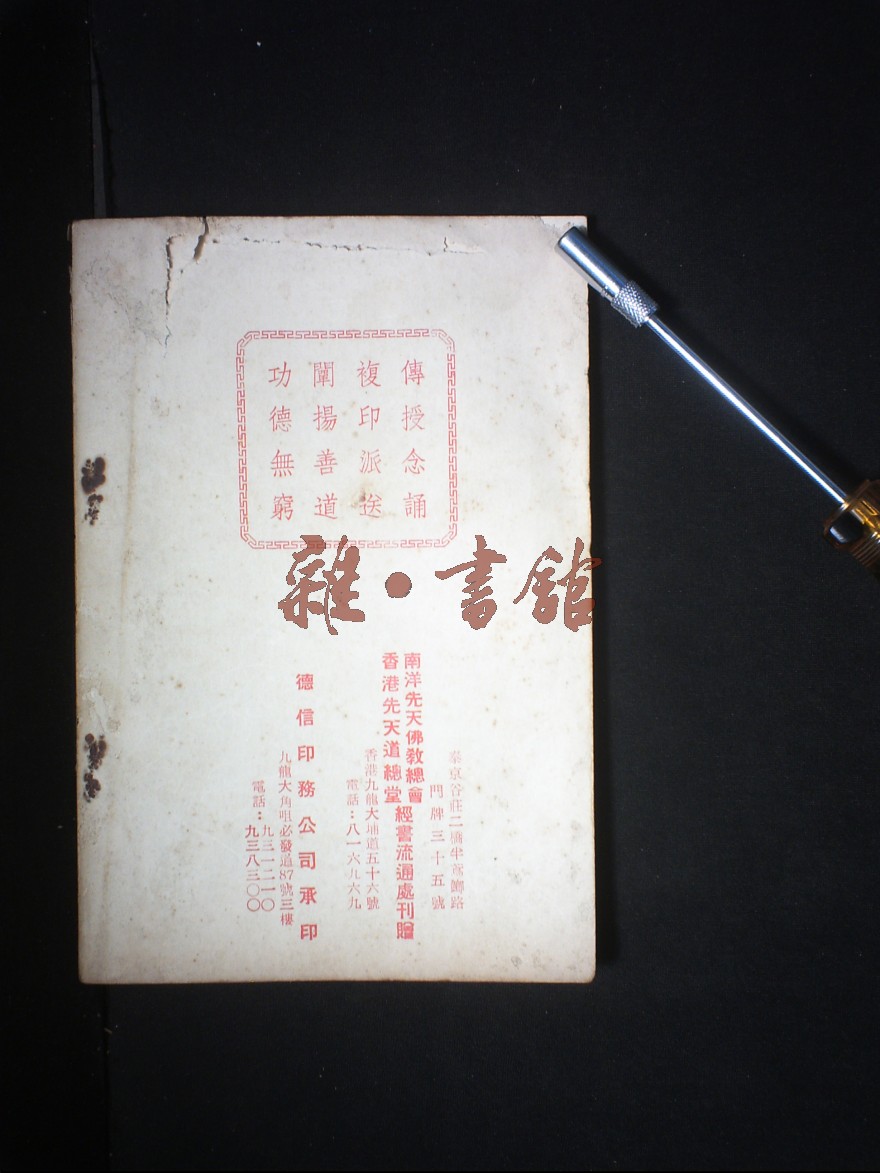 傳授念誦
複印派送
闡揚善道
功德無窮
雜•書館
京谷莊二橋半鳶啷路
門牌三十五號
南洋先天佛教總會
香港先天道總堂
經書流通處刊贈
香港九龍大埔道五十六號
電話：八一六九六九
德信印務公司承印
九龍大角咀必發道87號三樓
電話：九三一二一〇
九三八三〇〇